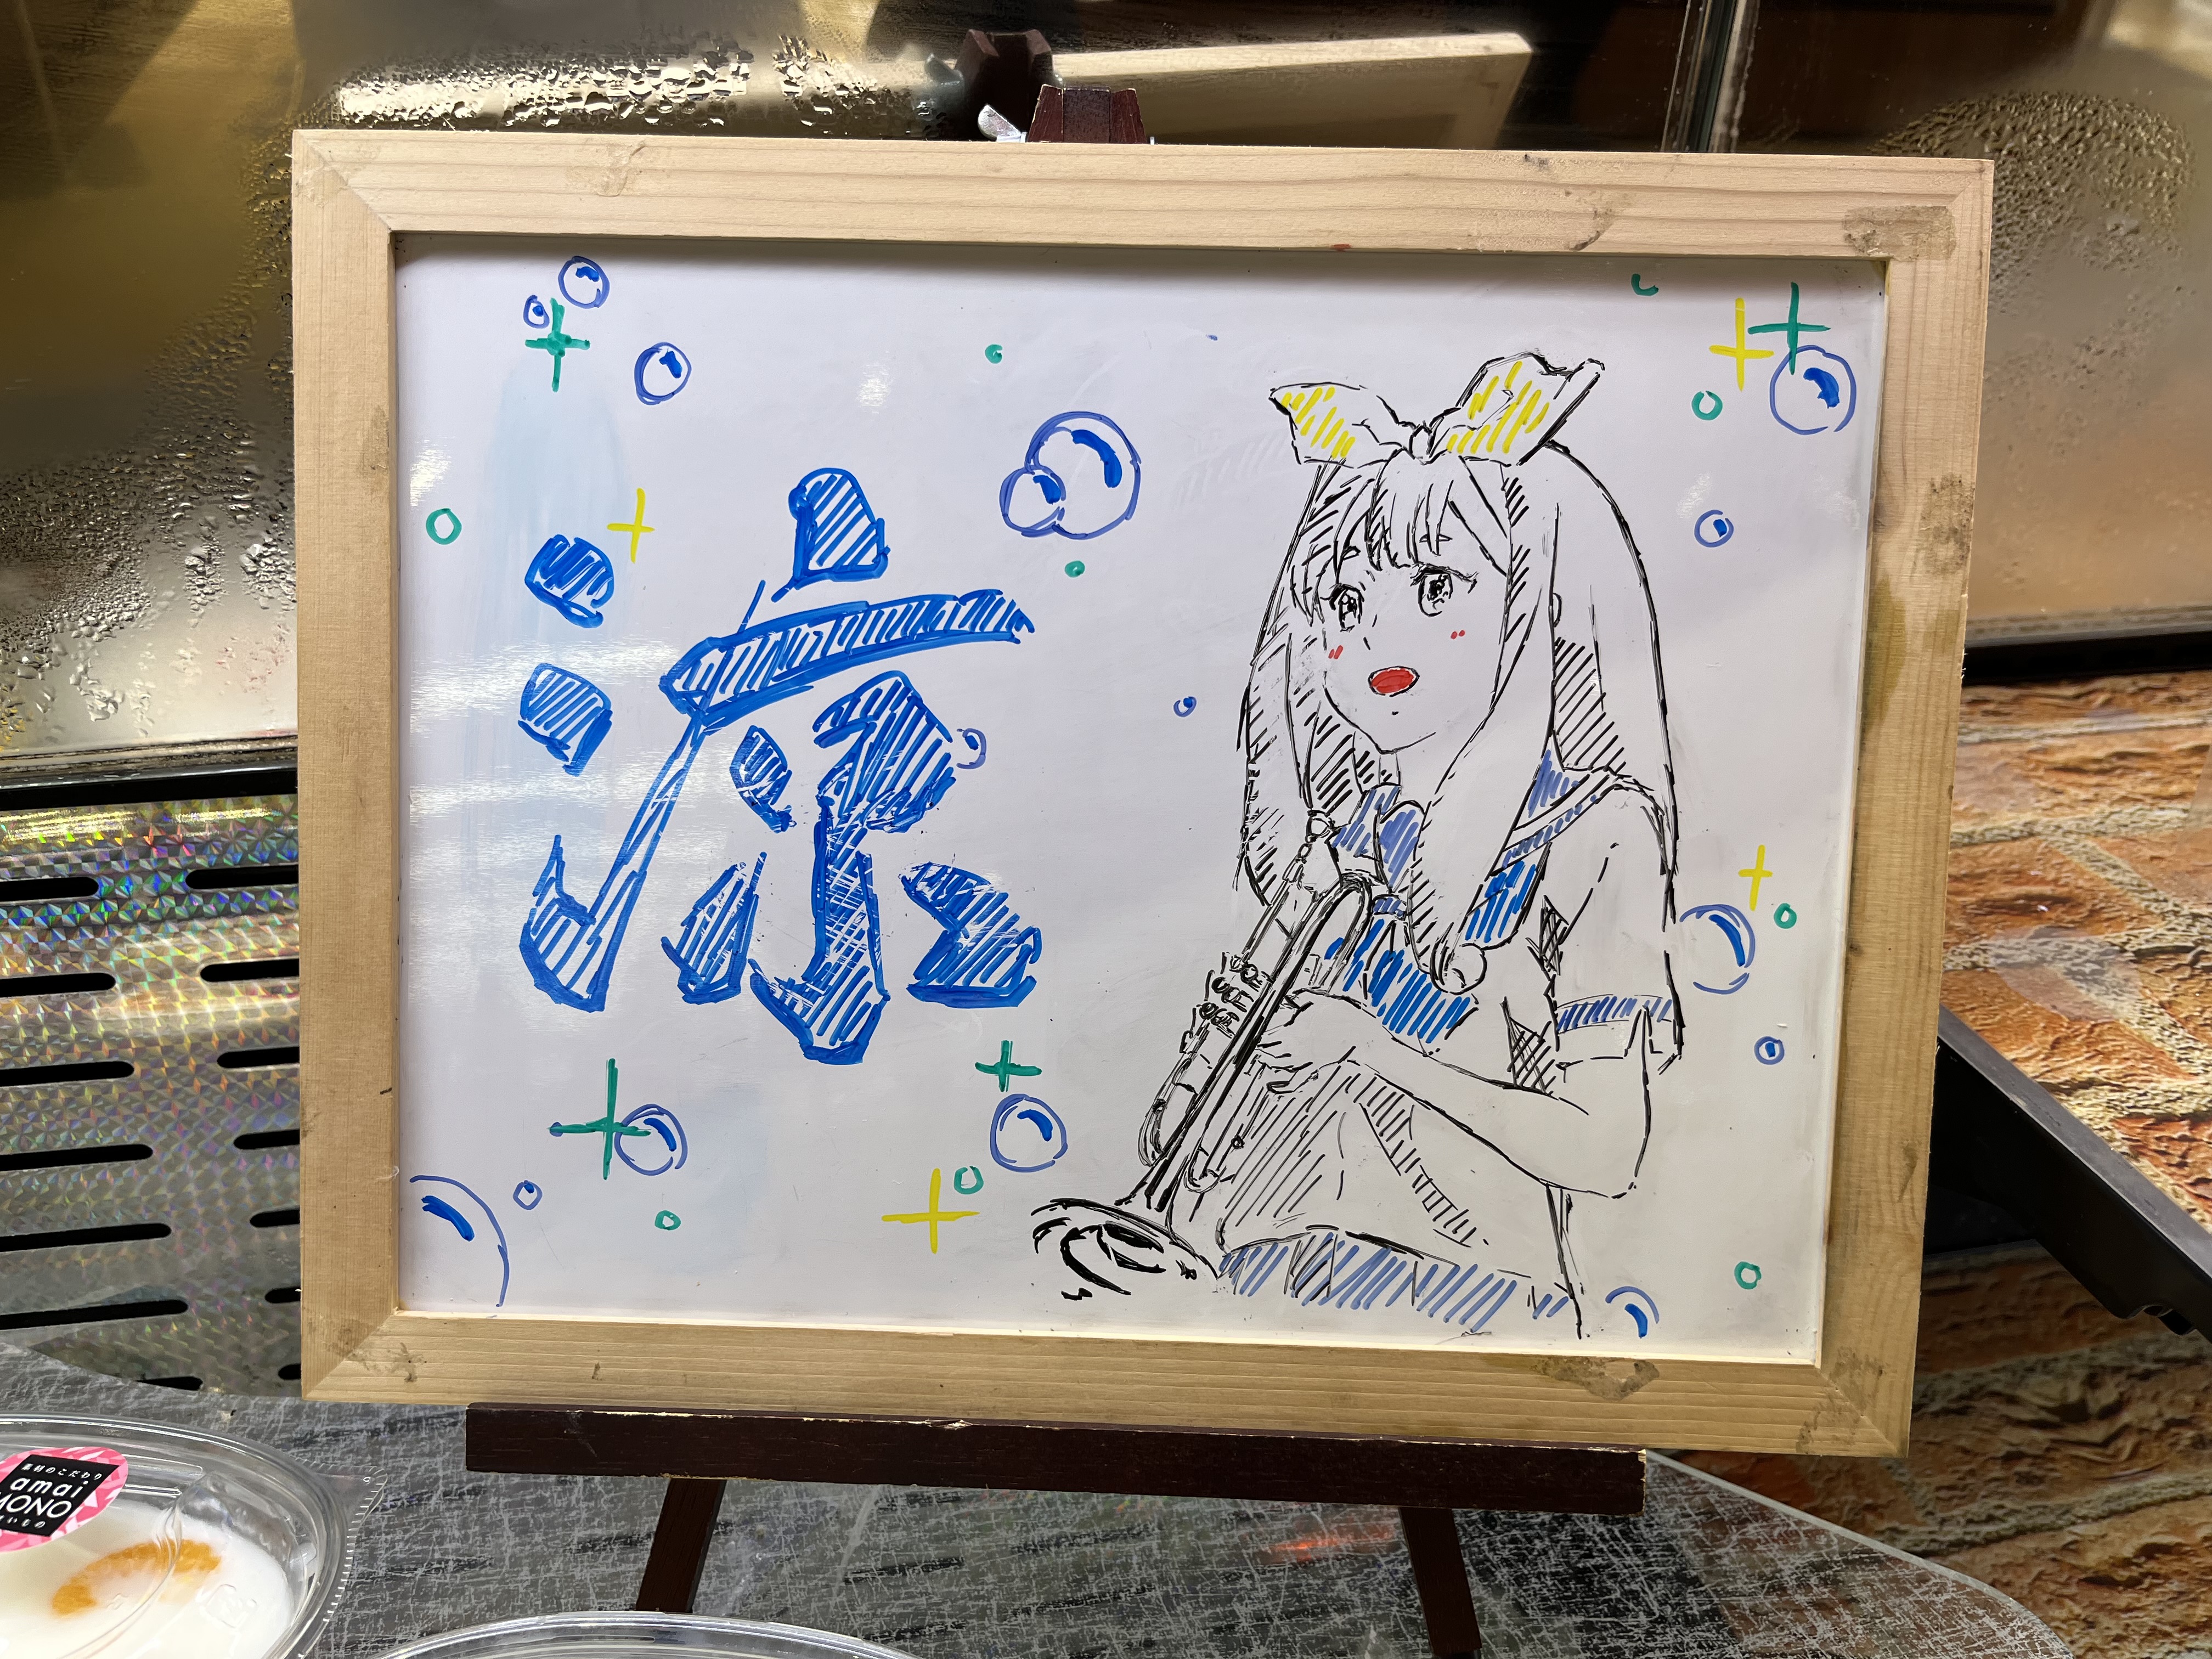 涼
素材のこだわり
amai
MONO